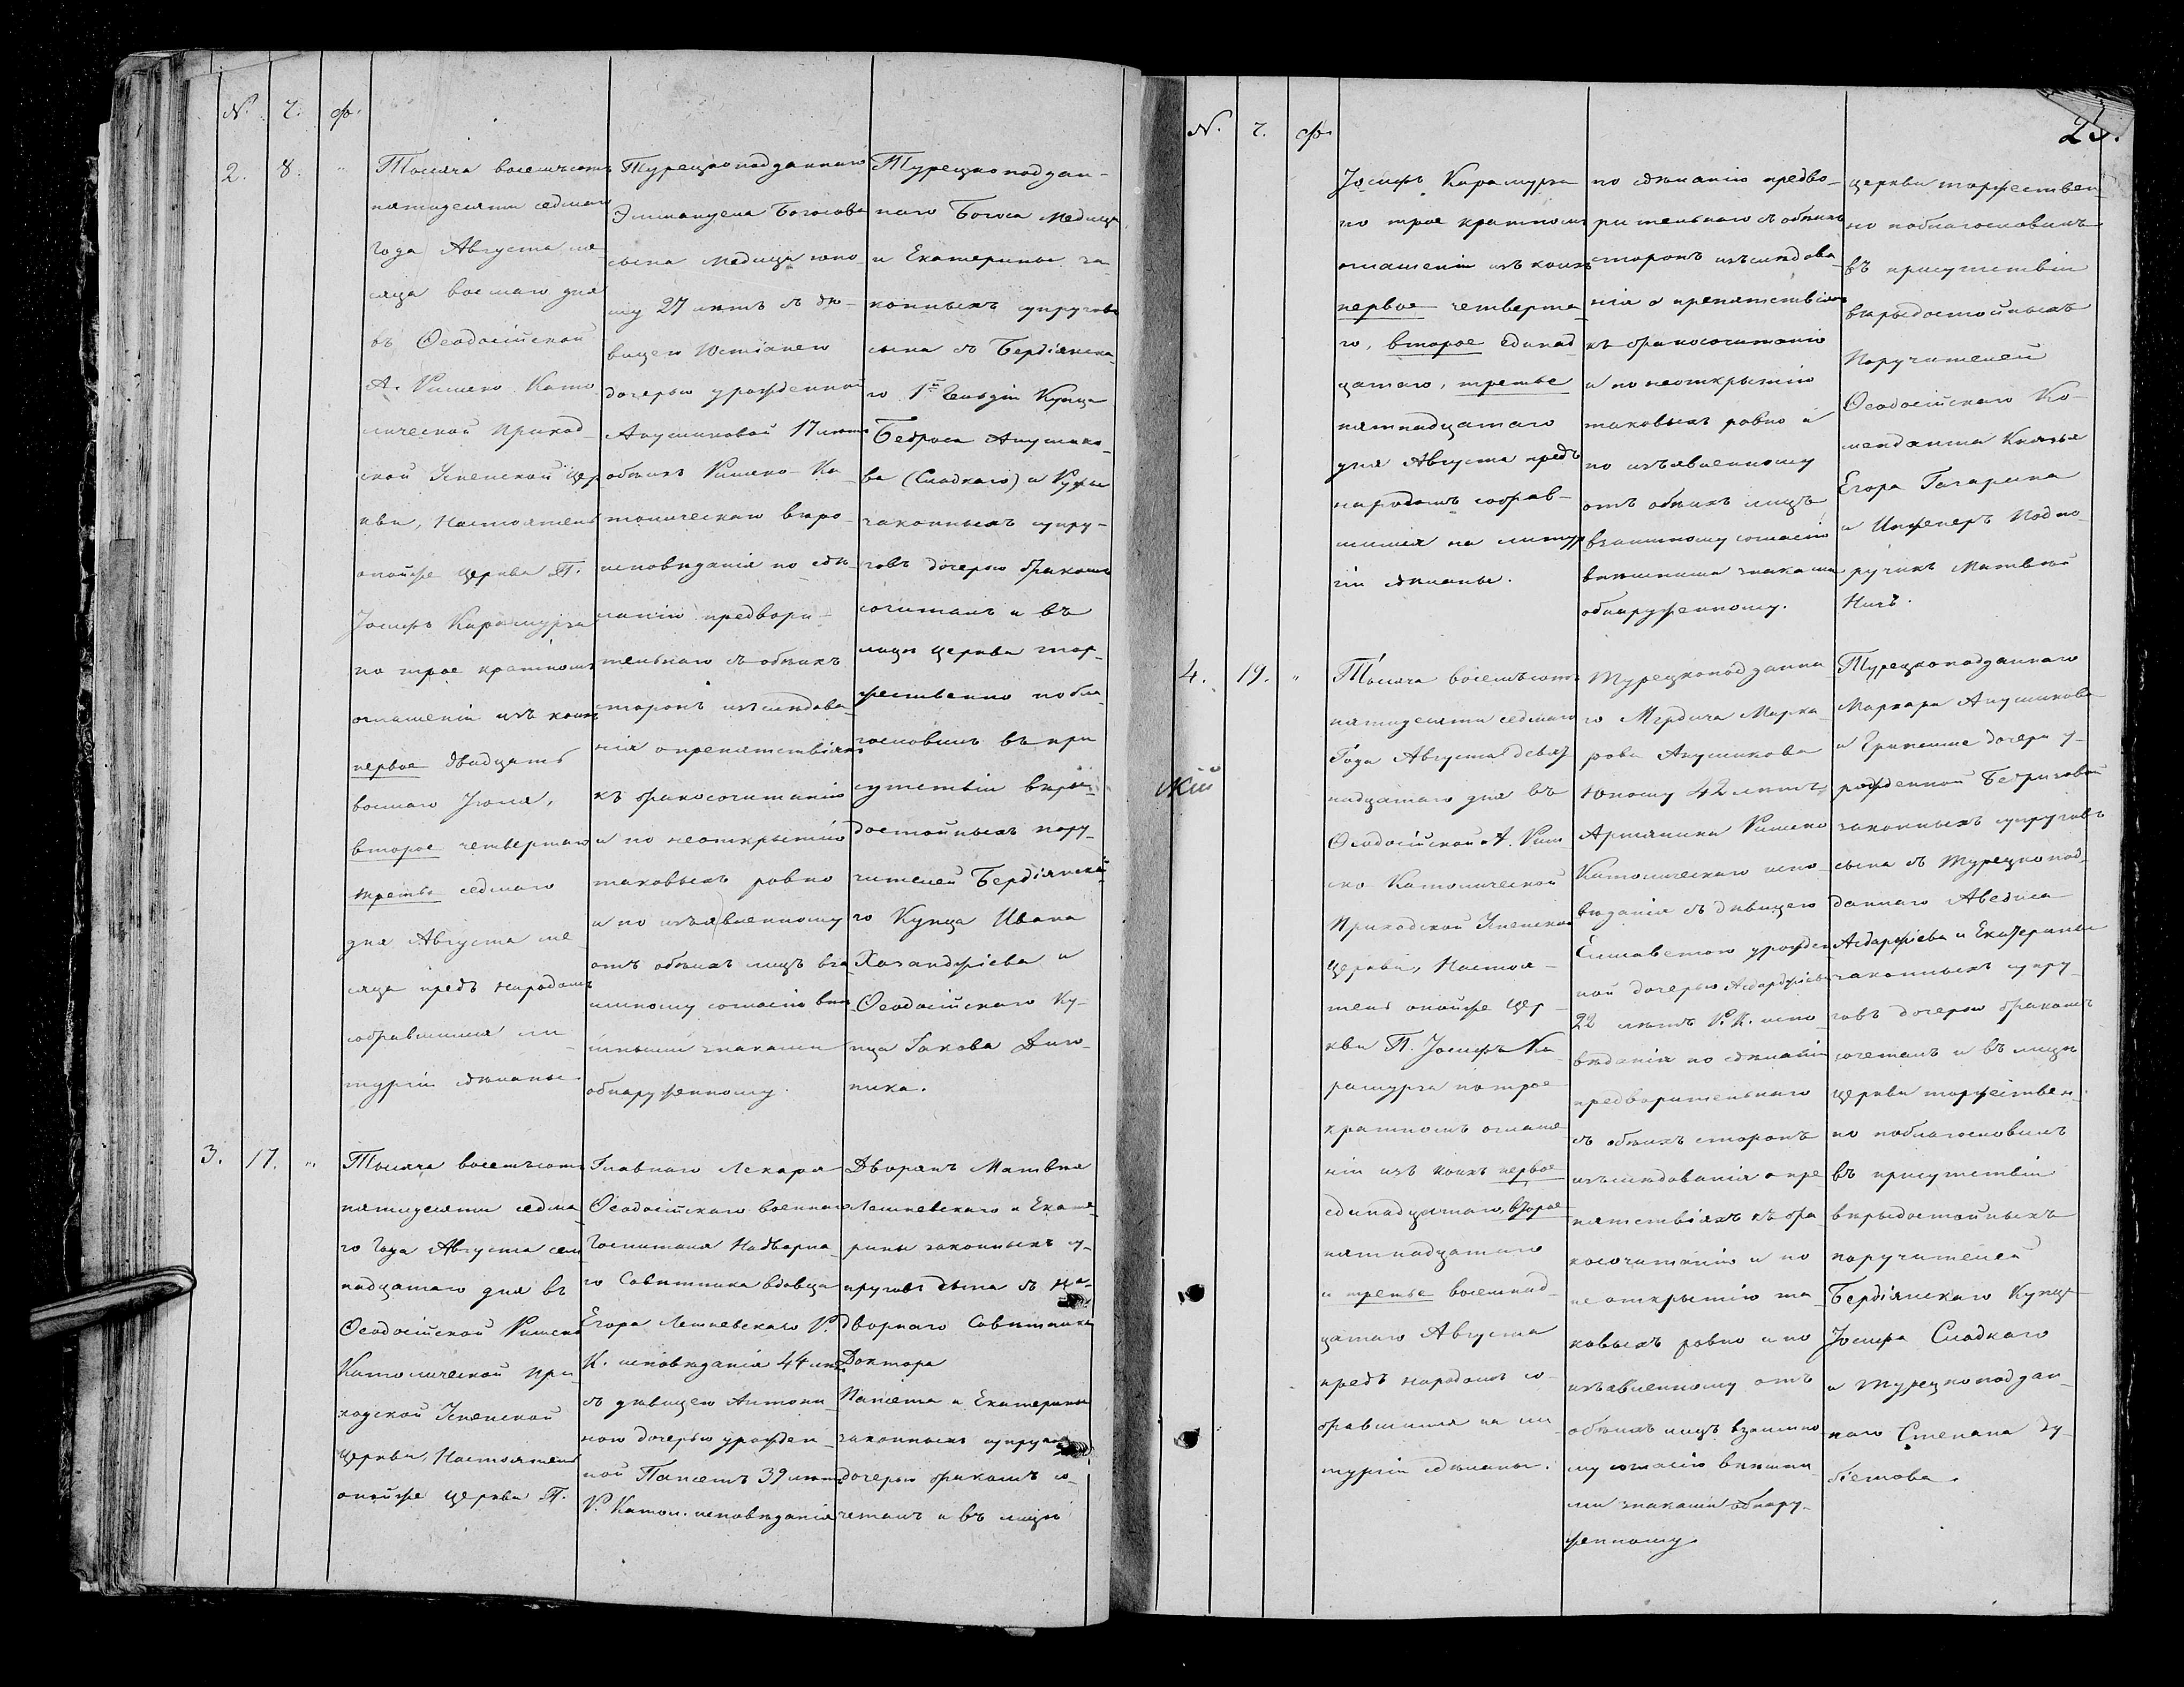 N. ч. ф.
2. 8. "
Тысяча восемьсотъ
пятидесяти седмаго
Года Августа мѣ-
сяца восмаго дня
въ Ѳеодосійской
А. Римско Като
лической Приход-
ской Успенской цер
кви, Настоятель
онойже церкви П.
Іосифъ Карамурза
по трое кратномъ
оглашеніи изъ коихъ
первое двадцать
восмаго Іюля,
второе четвертаго
третье седмаго
дня Августа мѣ-
сяца предъ народомъ
собравшимся ли-
тургіи сдѣланы.
Турецкоподданнаго
Эммануела Богосова
сына Медица юно-
шу 27 лѣтъ съ дѣ-
вицею Юстіанею
дочерью урожденной
Анушиковой 17 лѣтъ
обоихъ Римско-Ка
толическаго вѣро-
исповѣданія по сдѣ-
ланіи предвари-
тельнаго съ обѣихъ
сторонъ изслѣдова-
нія о препятствіяхъ
къ бракосочитанію
и по неоткрытію
таковыхъ ровно
и по изъявленному
отъ обѣихъ лицъ вза
имному согласію внѣ
шными знаками
обнаруженному.
Турецкоподдан-
наго Богоса Медица
и Екатерины за-
конныхъ супруговъ
сына съ Бердянска-
го 1й Гильдіи Купца
Бедроса Анушико-
ва (Сладкаго) и Руфы
законныхъ супру-
говъ дочерью бракомъ
сочиталъ и въ
лицѣ церкви тор-
жественно побла-
гословилъ въ при
сутствіи вѣро-
достойныхъ пору-
чителей Бердянска-
го Купца Ивана
Хазанджіева и
Ѳеодосійскаго Ку-
пца Іакова Диго-
ника.
3. 17. "
Тысяча восемьсотъ
пятидесяти седма-
го Года Августа сем
надцатаго дня въ
Ѳеодосійской Римско
Католической При-
ходской Успенской
Церкви, Настоятель
онойже церкви П.
Главнаго Лекаря
Ѳеодосійскаго военнаго
Госпиталя Надворна-
го Совѣтника вдовца
Егора Лешневскаго Р.
К. исповѣданія 44 лѣтъ
съ дѣвицею Антони-
ною дочерью урожден-
ной Панетъ 39 лѣтъ
Р. Катол. исповѣданія
Дворянъ Матвея
Лешневскаго и Екате-
рины законныхъ су-
пруговъ сына съ На-
дворнаго Совѣтника
Доктора
Панета и Екатерины
законныхъ супруговъ
дочерью бракомъ со-
четалъ и въ лицѣ
N. ч. ф.
25.
Іосифъ Карамурза
по трое кратномъ
оглашеніи изъ коихъ
первое четверта-
го, второе единад
цатаго, третье
пятнадцатаго
дня Августа предъ
народомъ собрав-
шимся на литур
гіи сдѣланы.
по сдѣланію предва-
рительнаго съ обѣихъ
сторонъ изъслѣдова-
нія о препятствіяхъ
къ бракосочитанію
и по неоткрытію
таковыхъ ровно и
по изъявленному
отъ обѣихъ лицъ
взаимному согласію
внѣшними знаками
обнаруженному.
церкви торжествен-
но поблагословилъ
въ присутствіи
вѣрыдостойныхъ
Поручителей
Ѳеодосійскаго Ко-
менданта Князья
Егора Гагарина
и Инженеръ Подпо-
ручикъ Матвей
4. 19. "
Тысяча восемьсотъ
пятидесяти седмаго
Года Августа девят
надцатаго дня въ
Ѳеодосійской А. Рим-
ско Католической
Приходской Успенской
Церкви, Настоя-
тель онойже Цер-
кви П. Іосифъ Ка-
рамурза по трое
кратномъ оглаше-
ніи изъ коихъ первое
единадцатаго, второе
пятнадцатаго
и третье восемнад-
цатаго Августа
предъ народомъ со-
бравшимся на ли-
тургіи сдѣланы.
Турецкоподданна
го Мердича Марка-
рова Анушикова
Юношу 42 лѣтъ
Армянина Римско
Католическаго испо-
вѣданія съ дѣвицею
Елисаветою урожден
ной дочерью
22 лѣтъ Р. К. испо-
вѣданія по сдѣланіи
предварительнаго
съ обѣихъ сторонъ
изъслѣдованія о пре
пятствіяхъ къ бра
косочитанію и по
не открытію та-
ковыхъ ровно и по
изъявленному отъ
обѣихъ лицъ взаимно-
му согласію внѣшни-
ми знаками обнару-
женному.
Турецкоподданнаго
Маркара Анушикова
и Гриписиме дочери у-
рожденной
законныхъ супруговъ
сына съ Турецкопод-
даннаго Аведиса
и Екатерины
законныхъ супру-
говъ дочерью бракомъ
сочеталъ и въ лицѣ
церкви торжествен-
но поблагословилъ
въ присутствіи
вѣрыдостойныхъ
поручителей
Бердянскаго Купца
Іосифа Сладкаго
и Турецкоподдан-
наго Степана